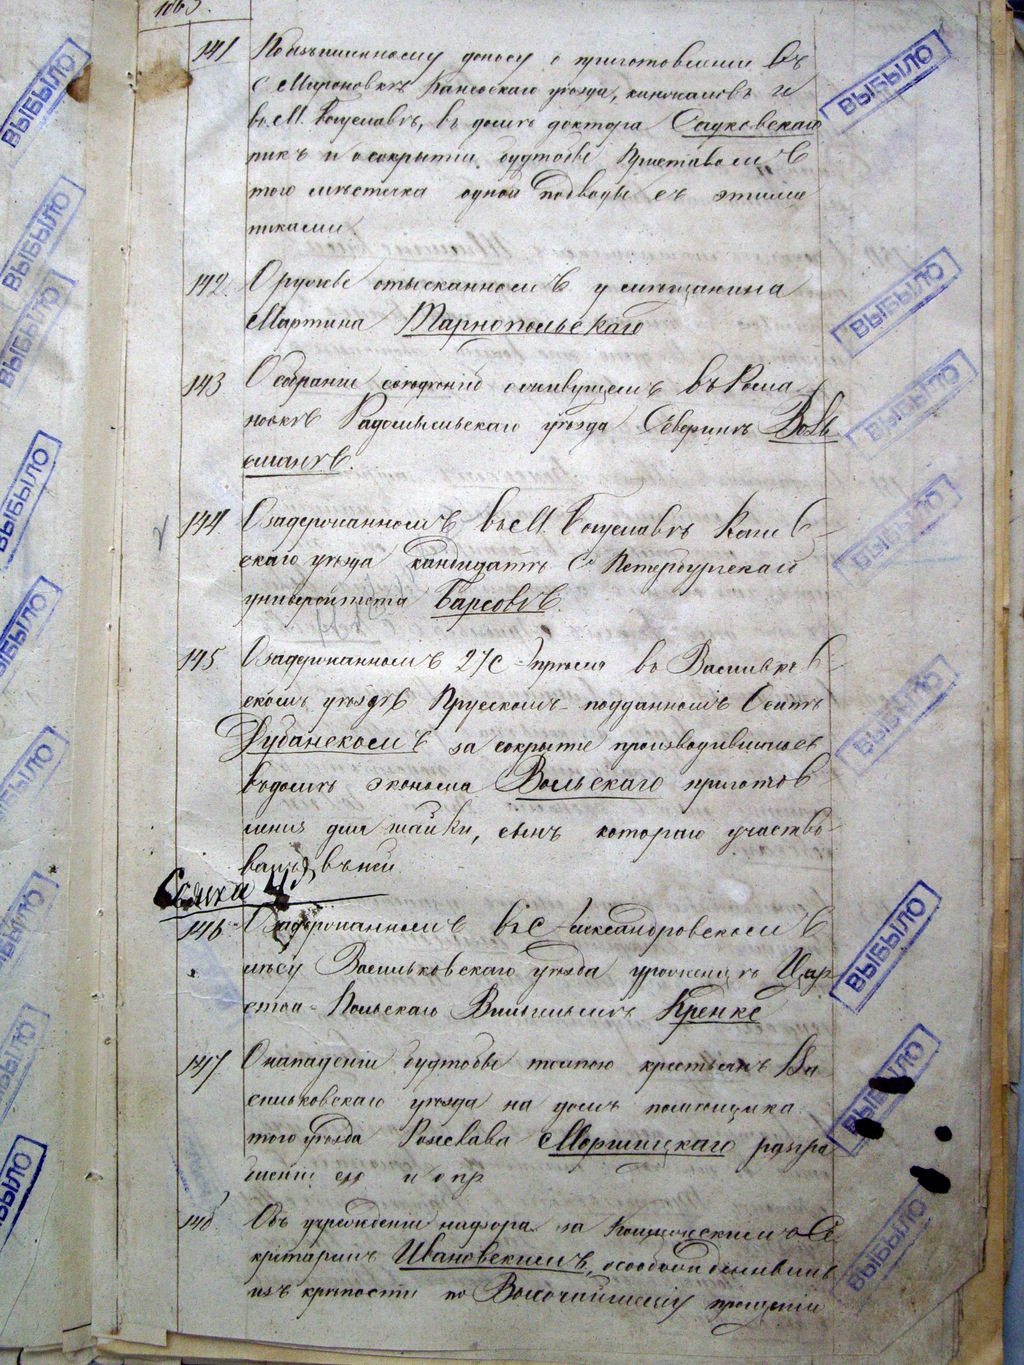 1863.
141 По возвышенному доносу о приготовлении въ
с. Мироновкѣ Каневскаго уѣзда, кинжаловъ и
въ М. Богуславѣ, въ домѣ доктора Сауковскаго
пикъ и о сокрытіи будтобы Приставомъ
того мѣстечка одной подводы съ этими
пиками
142. О ружьѣ отысканномъ у мѣщанина
Мартина Тарнопольскаго
143 О собраніи свѣдѣній о живущемъ въ Рома
новкѣ Радомысльскаго уѣзда Северинѣ
144 О задержанномъ въ М. Богуславѣ Канев-
скаго уѣзда кандидатѣ С Петербургскаго
университета Барсовѣ.
145 О задержанномъ въ Васильков-
скомъ уѣздѣ Прусскомъ подданномъ Осипѣ
Дубанскомъ за сокрытіе производившихся
въ домѣ эконома Вольскаго приготов
леній для шайки, сынъ котораго участво-
валъ въ ней
Связка 4
146 О задержанномъ въ с Александровскомъ
лѣсу Васильковскаго уѣзда уроженцѣ Цар
ства Польскаго Вильгельмѣ Кренке
147 О нападеніи будтобы толпою крестьянъ Ва
сильковскаго уѣзда на домъ помѣщика
того уѣзда и пр
148 Объ учрежденіи надзора за Се
кретаремъ Ивановскимъ, освобожденнымъ
изъ крѣпости по Высочайшему прощенію
ВЫБЫЛО
ВЫБЫЛО
ВЫБЫЛО
ВЫБЫЛО
ВЫБЫЛО
ВЫБЫЛО
ВЫБЫЛО
ВЫБЫЛО
ВЫБЫЛО
ВЫБЫЛО
ВЫБЫЛО
ВЫБЫЛО
ВЫБЫЛО
ВЫБЫЛО
ВЫБЫЛО
ВЫБЫЛО